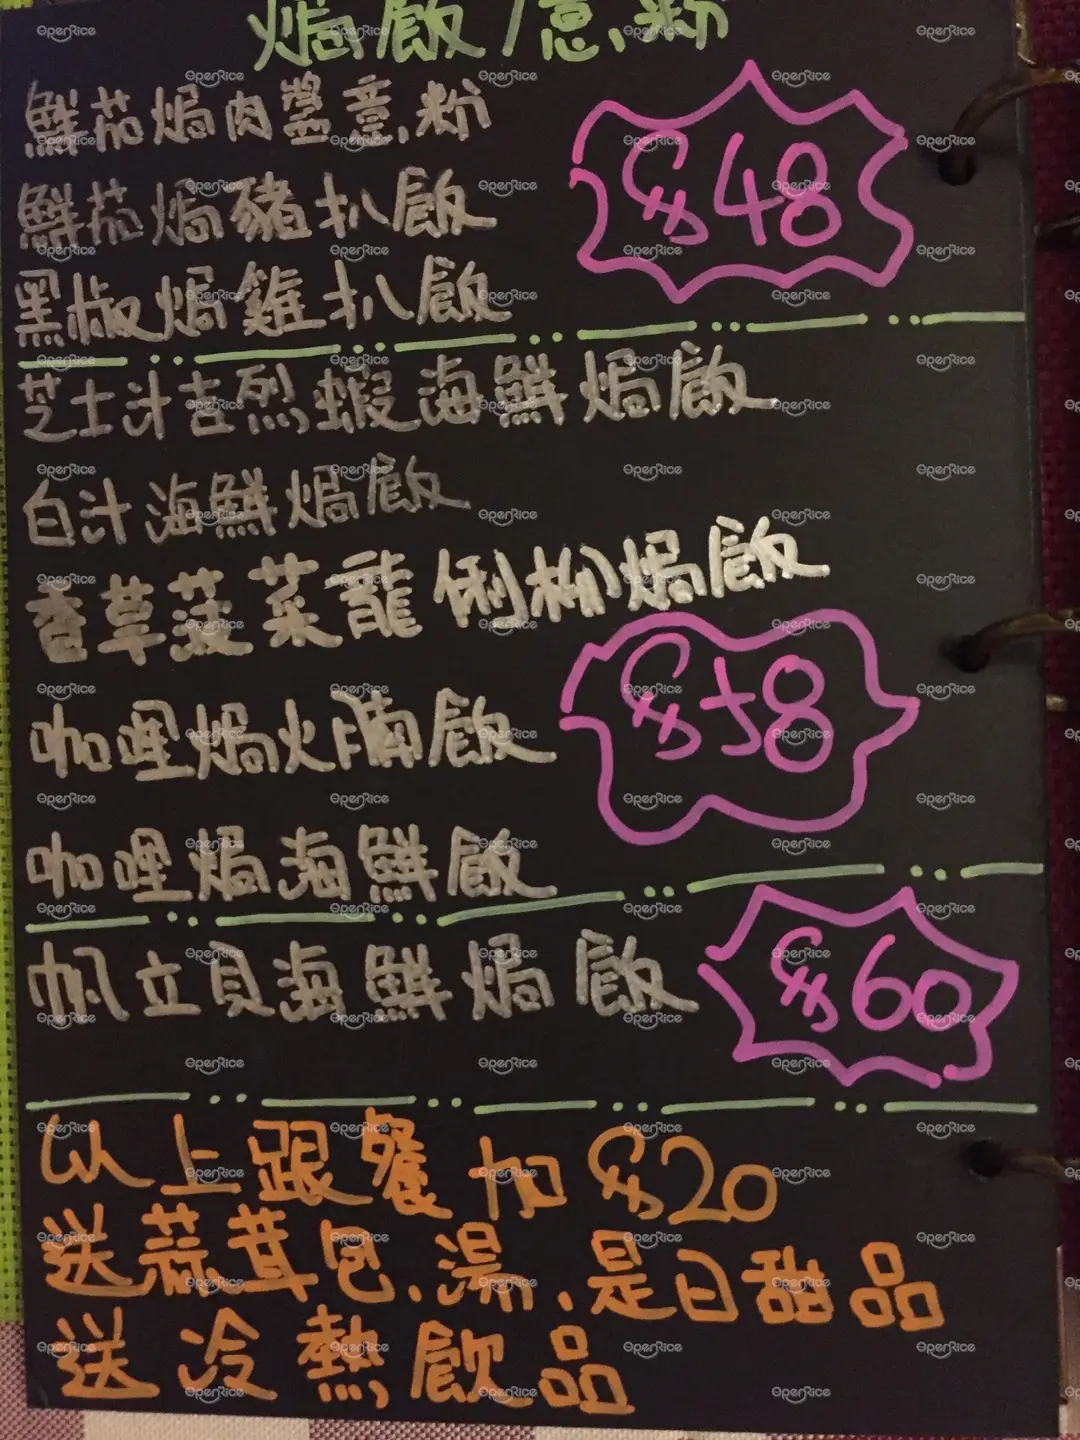 焗飯/意粉
鮮茄焗肉醬意粉
鮮茄焗豬扒飯
$48
黑椒焗雞扒飯
芝士汁吉烈蝦海鮮焗飯
白汁海鮮焗飯
香草菠菜龍俐柳焗飯
咖哩焗火腩飯
$58
咖哩焗海鮮飯
帆立貝海鮮焗飯
$60
以上跟餐加$20
送蒜茸包、湯、是日甜品
送冷熱飲品
OpenRice